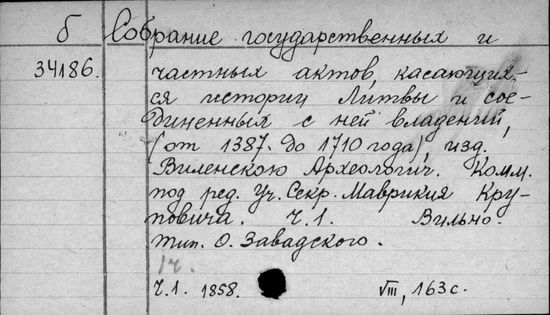 б Собрание государственных и
34186. частных актов, касающих-
ся истории Литвы и сое-
диненных с ней владений,
(от 1387. до 1710 года), изд.
Виленскою Археологич. Комм.
под ред. Уч. Секр. Маврикия Кру-
повича. Ч. 1. Вильно.
тип. О. Завадского.
1 ч.
Ч. 1. 1858. VIII, 163 с.